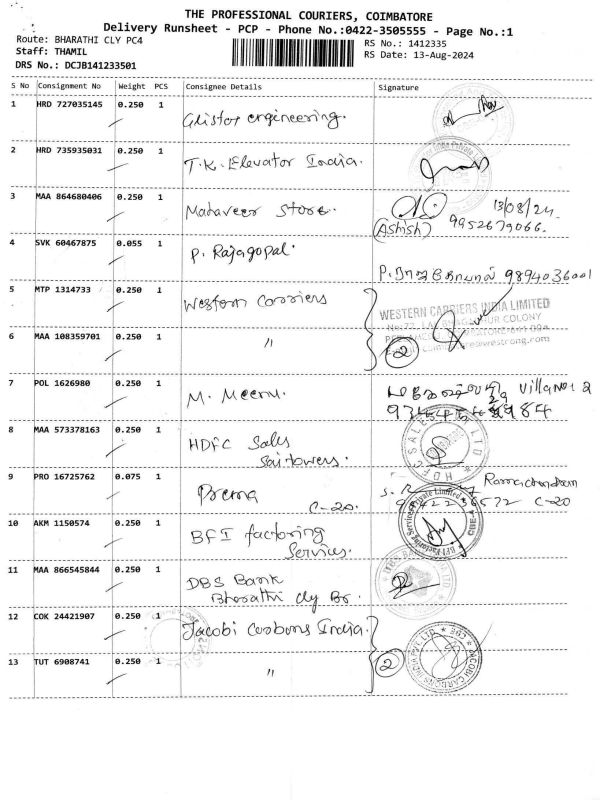 THE PROFESSIONAL COURIERS, COIMBATORE
Delivery Runsheet - PCP - Phone No.:0422-3505555 - Page No.:1
Route: BHARATHI CLY PC4
RS No.: 1412335
Staff: THAMIL
RS Date: 13-Aug-2024
DRS No.: DCJB141233501
S No Consignment No Weight PCS Consignee Details Signature
1 HRD 727035145 0.250 1 Glistor engineering.
2 HRD 735935031 0.250 1 T.K. Elevator India.
3 MAA 864680406 0.250 1 Mahaveer Store. 13/08/24.
(Ashish) 9952679066.
4 SVK 60467875 0.055 1 P. Rajagopal.
P. ராஜகோபால் 9894036001
5 MTP 1314733 0.250 1 Western Carriers
WESTERN CARRIERS INDIA LIMITED
6 MAA 108359701 0.250 1 〃 2
7 POL 1626980 0.250 1 M. Meenu.
8 MAA 573378163 0.250 1 HDFC Sales
Sai towers.
HDFC SALES PVT LTD
9 PRO 16725762 0.075 1 Prema
C-20.
Ramachandram
C-20
10 AKM 1150574 0.250 1 BFI factoring
Services.
BFI Factoring Services Private Limited CBE
11 MAA 866545844 0.250 1 DBS Bank
Bharathi cly Br.
12 COK 24421907 0.250 1 Jacobi Carbons India.
13 TUT 6908741 0.250 1 〃 2
JACOBI CARBONS INDIA PVT LTD CBE